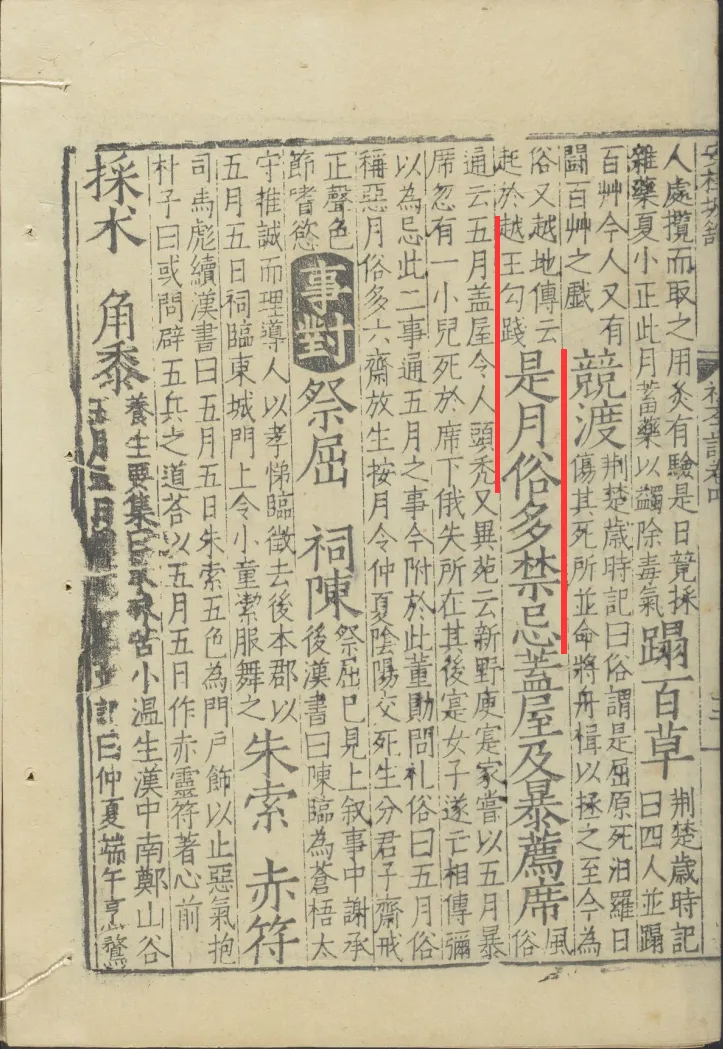 安桂坡館
初學記卷四
人處攬而取之用灸有驗是日競採
雜藥夏小正此月蓄藥以蠲除毒氣
蹋百草
荊楚歲時記
曰四人並蹋
百艸今人又有
鬭百艸之戲
競渡
荆楚歲時記曰俗謂是屈原死汨羅日
傷其死所並命將舟楫以拯之至今為
俗又越地傳云
起於越王勾踐
是月俗多禁忌蓋屋及暴薦席
風
俗
通云五月盖屋令人頭禿又異苑云新野庾寔家嘗以五月暴
席忽有一小兒死於席下俄失所在其後寔女子遂亡相傳彌
以為忌此二事通五月之事今附於此董勛問礼俗曰五月俗
稱惡月俗多六齋放生按月令仲夏陰陽交死生分君子齋戒
正聲色
節嗜慾
事對
祭屈 祠陳
祭屈已見上叙事中謝承
後漢書曰陳臨為蒼梧太
守推誠而理導人以孝悌臨徵去後本郡以
五月五日祠臨東城門上令小童潔服舞之
朱索 赤符
司馬彪續漢書曰五月五日朱索五色為門戶飾以止惡氣抱
朴子曰或問辟五兵之道荅以五月五日作赤靈符著心前
採术 角黍
養生要集曰术味苦小温生漢中南鄭山谷
五月五日 記曰仲夏端午烹鶩